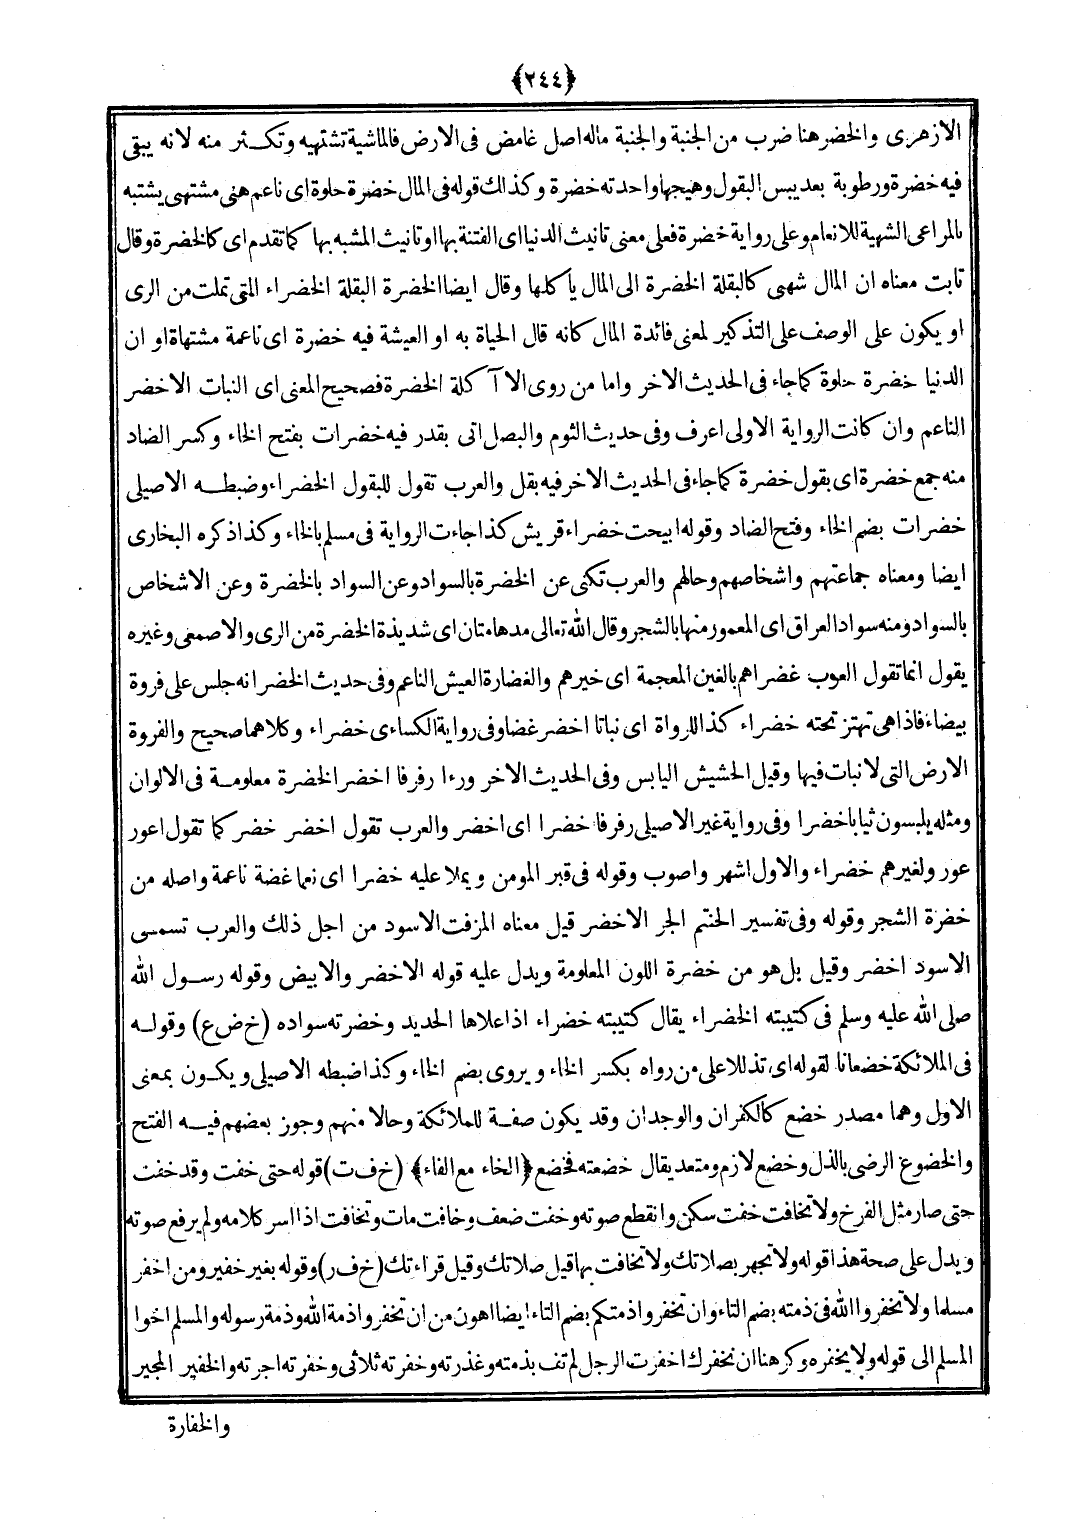 ﴿٢٤٤﴾
الازهرى والخضر هنا ضرب من الجنبة والجنبة ماله اصل غامض فى الارض فالماشية تشتهيه وتكثر منه لانه يبقى
فيه خضرة ورطوبة بعد يبس البقول وهيجها واحدته خضرة وكذلك قوله فى المال خضرة حلوة اى ناعم هنى مشتهى يشتبه
بالمراعى الشهية للانعام وعلى رواية خضرة فعلى معنى تانيث الدنيا اى الفتنة بها او تانيث المشبه بها كما تقدم اى كالخضرة وقال
ثابت معناه ان المال شهى كالبقلة الخضرة الى المال يأكلها وقال ايضا الخضرة البقلة الخضراء التى تملت من الرى
او يكون على الوصف على التذكير لمعنى فائدة المال كانه قال الحياة به او العيشة فيه خضرة اى ناعمة مشتهاة او ان
الدنيا خضرة حلوة كما جاء فى الحديث الاخر واما من روى الا آكلة الخضرة فصحيح المعنى اى النبات الاخضر
الناعم وان كانت الرواية الاولى اعرف وفى حديث الثوم والبصل اتى بقدر فيه خضرات بفتح الخاء وكسر الضاد
منه جمع خضرة اى بقول خضرة كما جاء فى الحديث الاخر فيه بقل والعرب تقول للبقول الخضراء وضبطه الاصيلى
خضرات بضم الخاء وفتح الضاد وقوله ابيحت خضراء قريش كذا جاءت الرواية فى مسلم بالخاء وكذا ذكره البخارى
ايضا ومعناه جماعتهم واشخاصهم وحالهم والعرب تكنى عن الخضرة بالسواد وعن السواد بالخضرة وعن الاشخاص
بالسواد ومنه سواد العراق اى المعمور منها بالشجر وقال الله تعالى مدهامتان اى شديدة الخضرة من الرى والاصمعى وغيره
يقول انما تقول العرب غضراهم بالغين المعجمة اى خيرهم والغضارة العيش الناعم وفى حديث الخضر انه جلس على فروة
بيضاء فاذا هى تهتز تحته خضراء كذا للرواة اى نباتا اخضر غضا وفى رواية الكساءى خضراء وكلاهما صحيح والفروة
الارض التى لا نبات فيها وقيل الحشيش اليابس وفى الحديث الاخر ورءا رفرفا اخضر الخضرة معلومة فى الالوان
ومثله يلبسون ثيابا خضرا وفى رواية غير الاصيلى رفرفا خضرا اى اخضر والعرب تقول اخضر خضر كما تقول اعور
عور ولغيرهم خضراء والاول اشهر واصوب وقوله فى قبر المومن ويملا عليه خضرا اى نعما غضة ناعمة واصله من
خضرة الشجر وقوله وفى تفسير الحنتم الجر الاخضر قيل معناه المزفت الاسود من اجل ذلك والعرب تسمى
الاسود اخضر وقيل بل هو من خضرة اللون المعلومة ويدل عليه قوله الاخضر والابيض وقوله رسول الله
صلى الله عليه وسلم فى كتيبته الخضراء يقال كتيبته خضراء اذا علاها الحديد وخضرته سواده (خ ض ع) وقوله
فى الملائكة خضعانا لقوله اى تذللا على من رواه بكسر الخاء ويروى بضم الخاء وكذا ضبطه الاصيلى ويكون بمعنى
الاول وهما مصدر خضع كالكفران والوجدان وقد يكون صفة للملائكة وحالا منهم وجوز بعضهم فيه الفتح
والخضوع الرضى بالذل وخضع لازم ومتعد يقال خضعته فخضع ﴿الخاء مع الفاء﴾ (خ ف ت) قوله حتى خفت وقد خفت
حتى صار مثل الفرخ ولا تخافت خفت سكن وانقطع صوته وخفت ضعف وخافت مات وتخافت اذا اسر كلامه ولم يرفع صوته
ويدل على صحة هذا قوله ولا تجهر بصلاتك ولا تخافت بها قيل صلاتك وقيل قراءتك (خ ف ر) وقوله بغير خفير ومن اخفر
مسلما ولا تخفروا الله فى ذمته بضم التاء وان تخفروا ذمتكم بضم التاء ايضا اهون من ان تخفروا ذمة الله وذمة رسوله والمسلم اخوا
المسلم الى قوله ولا يخفره وكرهنا ان نخفرك اخفرت الرجل لم تف بذمته وغدرته وخفرته ثلاثى وخفرته اجرته والخفير المجير
والخفارة